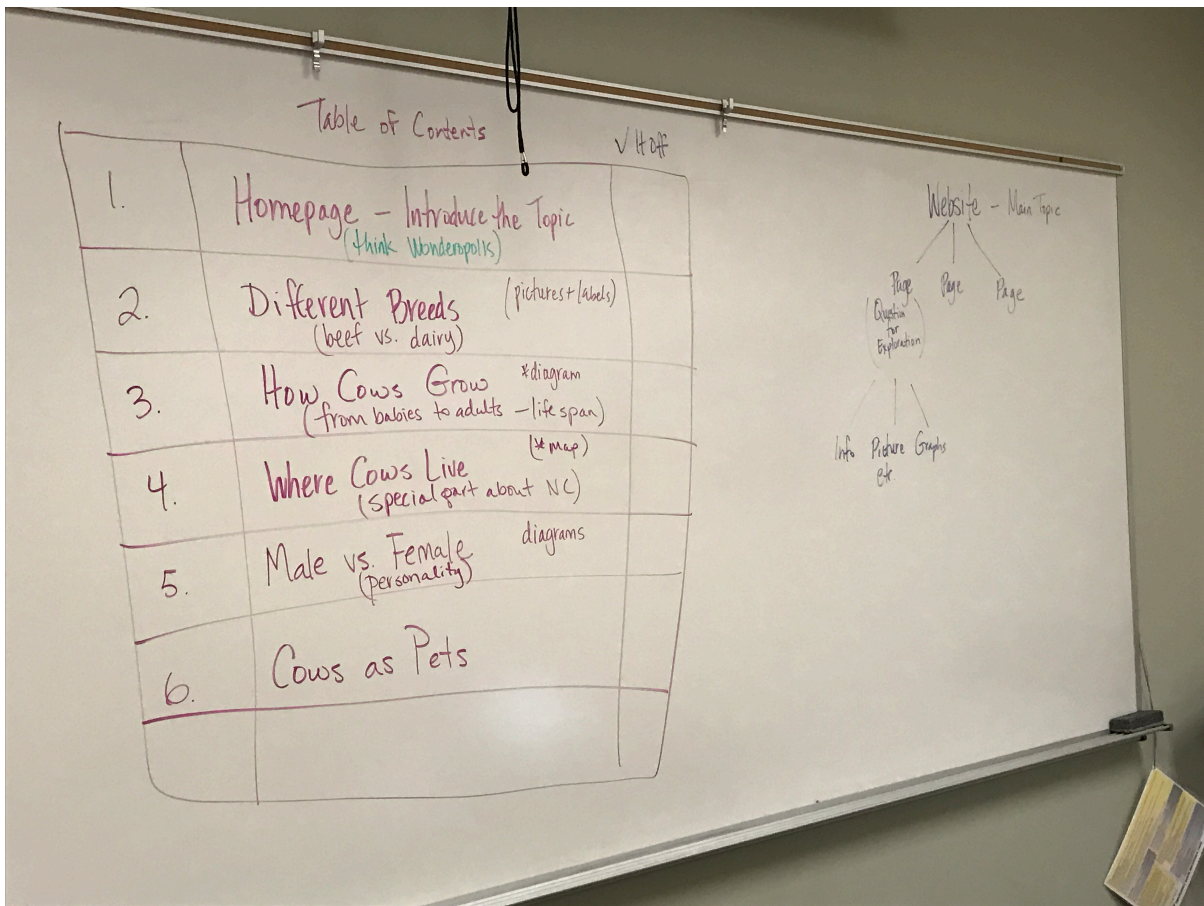 Table of Contents
✓ It off
1.
Homepage – Introduce the Topic
(think Wonderopolis)
2.
Different Breeds (pictures + labels)
(beef vs. dairy)
3.
How Cows Grow *diagram
(from babies to adults – life span)
4.
(*map)
Where Cows Live
(special part about NC)
5.
Male vs. Female diagrams
(personality)
6.
Cows as Pets
Website – Main Topic
Page Page Page
(Question
for
Exploration)
Info Picture Graphs
etc.